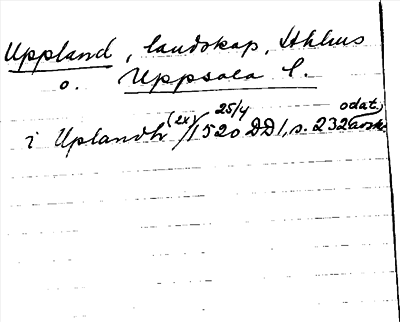 Uppland, landskap, Sthlms
o. Uppsala l.
i Uplandh (2x) 25/4 1520 DD 1, s. 232 odat.